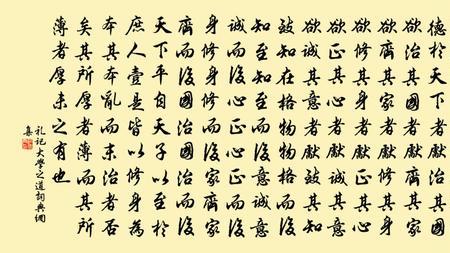 德於天下者獻治其國
欲治其國者獻齊其家
欲齊其家者獻修其身
欲修其身者獻正其心
欲正其心者獻誠其意
欲誠其意者獻致其知
致知在格物物格而後
知至知至而後意誠意
誠而後心正心正而後
身修身修而後家齊家
齊而後國治國治而後
天下平自天子以至於
庶人壹是皆以修身為
本其本亂而末治者否
矣其所厚者薄而其所
薄者厚未之有也
礼記大學之道詞典網
集